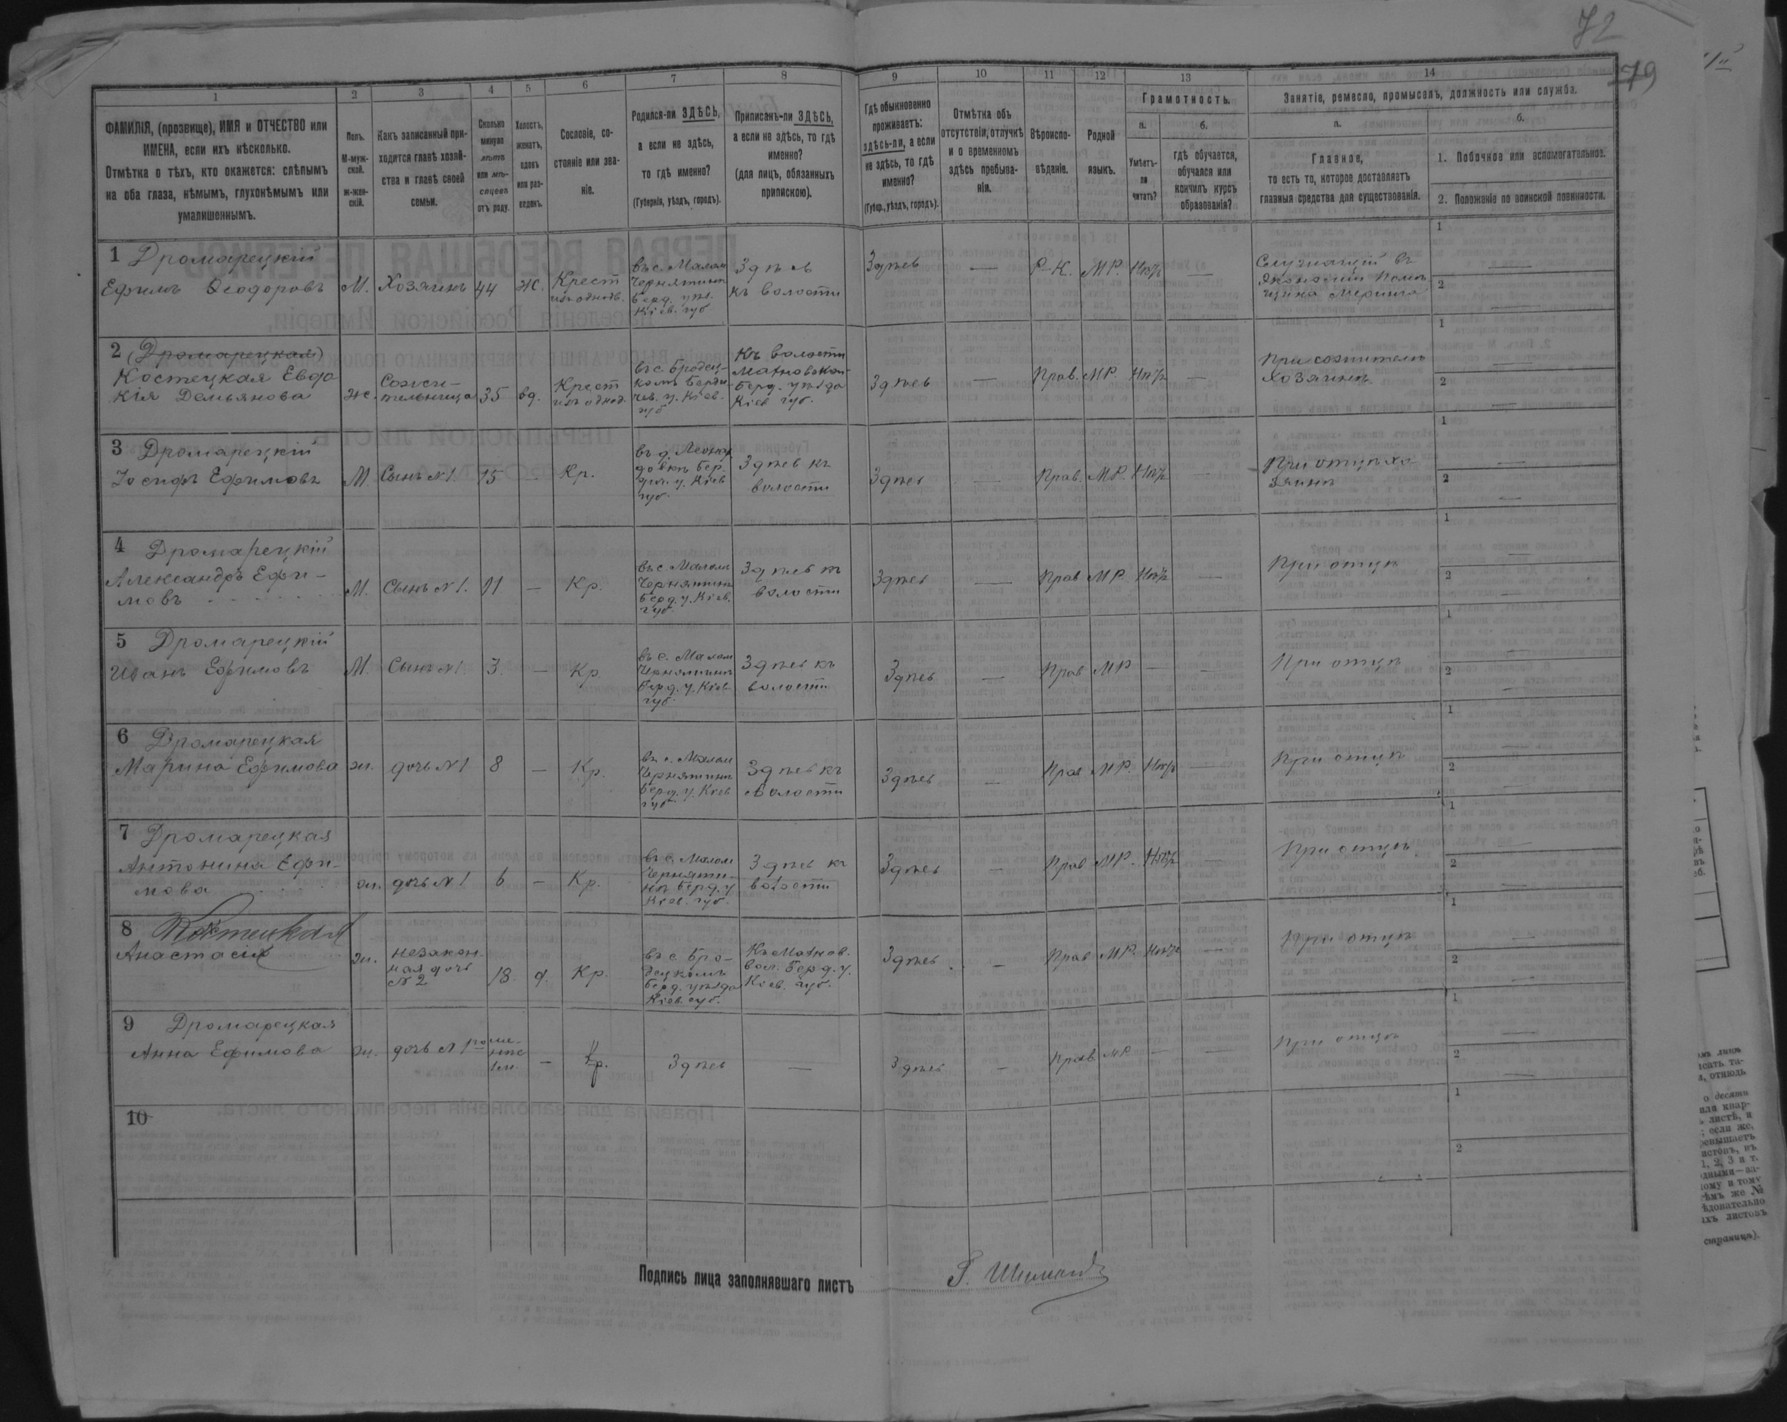 72
79
1
2
3
4
5
6
7
8
9
10
11
12
13
14
ФАМИЛІЯ, (прозвище), ИМЯ и ОТЧЕСТВО или
ИМЕНА, если ихъ нѣсколько.
Отмѣтка о тѣхъ, кто окажется: слѣпымъ
на оба глаза, нѣмымъ, глухонѣмымъ или
умалишеннымъ.
Полъ.
М-муж-
ской.
ж-жен-
скій.
Какъ записанный при-
ходится главѣ хозяй-
ства и главѣ своей
семьи.
Сколько
минуло
лѣтъ
или мѣ-
сяцевъ
отъ роду.
Холостъ,
женатъ,
вдовъ
или раз-
веденъ.
Сословіе, со-
стояніе или зва-
ніе.
Родился-ли ЗДѢСЬ,
а если не здѣсь,
то гдѣ именно?
(Губернія, уѣздъ, городъ).
Приписанъ-ли ЗДѢСЬ,
а если не здѣсь, то гдѣ
именно?
(для лицъ, обязанныхъ
припискою).
Гдѣ обыкновенно
проживаетъ:
здѣсь-ли, а если
не здѣсь, то гдѣ
именно?
(Губер., уѣздъ, городъ).
Отмѣтка объ
отсутствіи, отлучкѣ
и о временномъ
здѣсь пребыва-
ніи.
Вѣроиспо-
вѣданіе.
Родной
языкъ.
Грамотность.
а.
б.
Умѣетъ-
ли
читать?
гдѣ обучается,
обучался или
кончилъ курсъ
образованія?
Занятіе, ремесло, промыселъ, должность или служба.
а.
б.
Главное,
то есть то, которое доставляетъ
главныя средства для существованія.
1. Побочное или вспомогательное.
2. Положеніе по воинской повинности.
1 Дромарецкій
Ефимъ Ѳеодоровъ
М. Хозяинъ 44 ж. Крест
изъ однод.
въ с. Маломъ
Чернятинѣ
Берд. уѣз.
Кіев. губ
Здѣсь
къ волости
Здѣсь — Р-К. МР. Нѣтъ —
Служащій въ
1
2
2 (Дромарецкая)
Костецкая Евдо
кія Демьянова
ж. Сожи-
тельница 35 вд. Крест
изъ однод.
въ с. Бродец-
комъ Берди-
чев. у. Кіев.
губ
Къ волости
Берд. уѣзда
Кіев губ.
Здѣсь — Прав. МР. Нѣтъ —
При сожителѣ
хозяинѣ
1
2
3 Дромарецкій
Іосифъ Ефимовъ
М Сынъ №1 15 — Кр.
Здѣсь къ
волости
Здѣсь — Прав. МР. Нѣтъ —
При отцѣ хо
зяинѣ
1
2
4 Дромарецкій
Александръ Ефи-
мовъ
М. Сынъ №1. 11 — Кр.
въ с Маломъ
Чернятинѣ
Берд. у. Кіев.
губ.
Здѣсь къ
волости
Здѣсь — Прав МР. Нѣтъ —
При отцѣ
1
2
5 Дромарецкій
Иванъ Ефимовъ
М. Сынъ №1. 3 — Кр
въ с. Маломъ
Чернятинѣ
Берд. у. Кіев
губ.
Здѣсь къ
волости
Здѣсь — Прав МР — —
При отцѣ
1
2
6 Дромарецкая
Марина Ефимова
ж. дочь №1 8 — Кр.
въ с. Маломъ
Чернятинѣ
Берд. у. Кіев
губ
Здѣсь къ
волости
Здѣсь — Прав МР. Нѣтъ —
При отцѣ
1
2
7 Дромарецкая
Антонина Ефи-
мова
ж. дочь №1 6 — Кр.
въ с. Маломъ
Черняти-
нѣ Берд. у
Кіев. губ.
Здѣсь къ
волости
Здѣсь — Прав МР. Нѣтъ —
При отцѣ
1
2
8 Костецкая
Анастасія
ж. незакон
ная дочь
№2 18 д. Кр.
въ с. Бро-
децкомъ
Берд. уѣзда
Кіев губ.
вол. Берд. у.
Кіев. губ.
Здѣсь — Прав МР. Нѣтъ
При отцѣ
1
2
9 Дромарецкая
Анна Ефимова
ж. дочь №1
— Кр. Здѣсь — Здѣсь — Прав МР — —
При отцѣ
1
2
10
1
2
Подпись лица заполнявшаго листъ